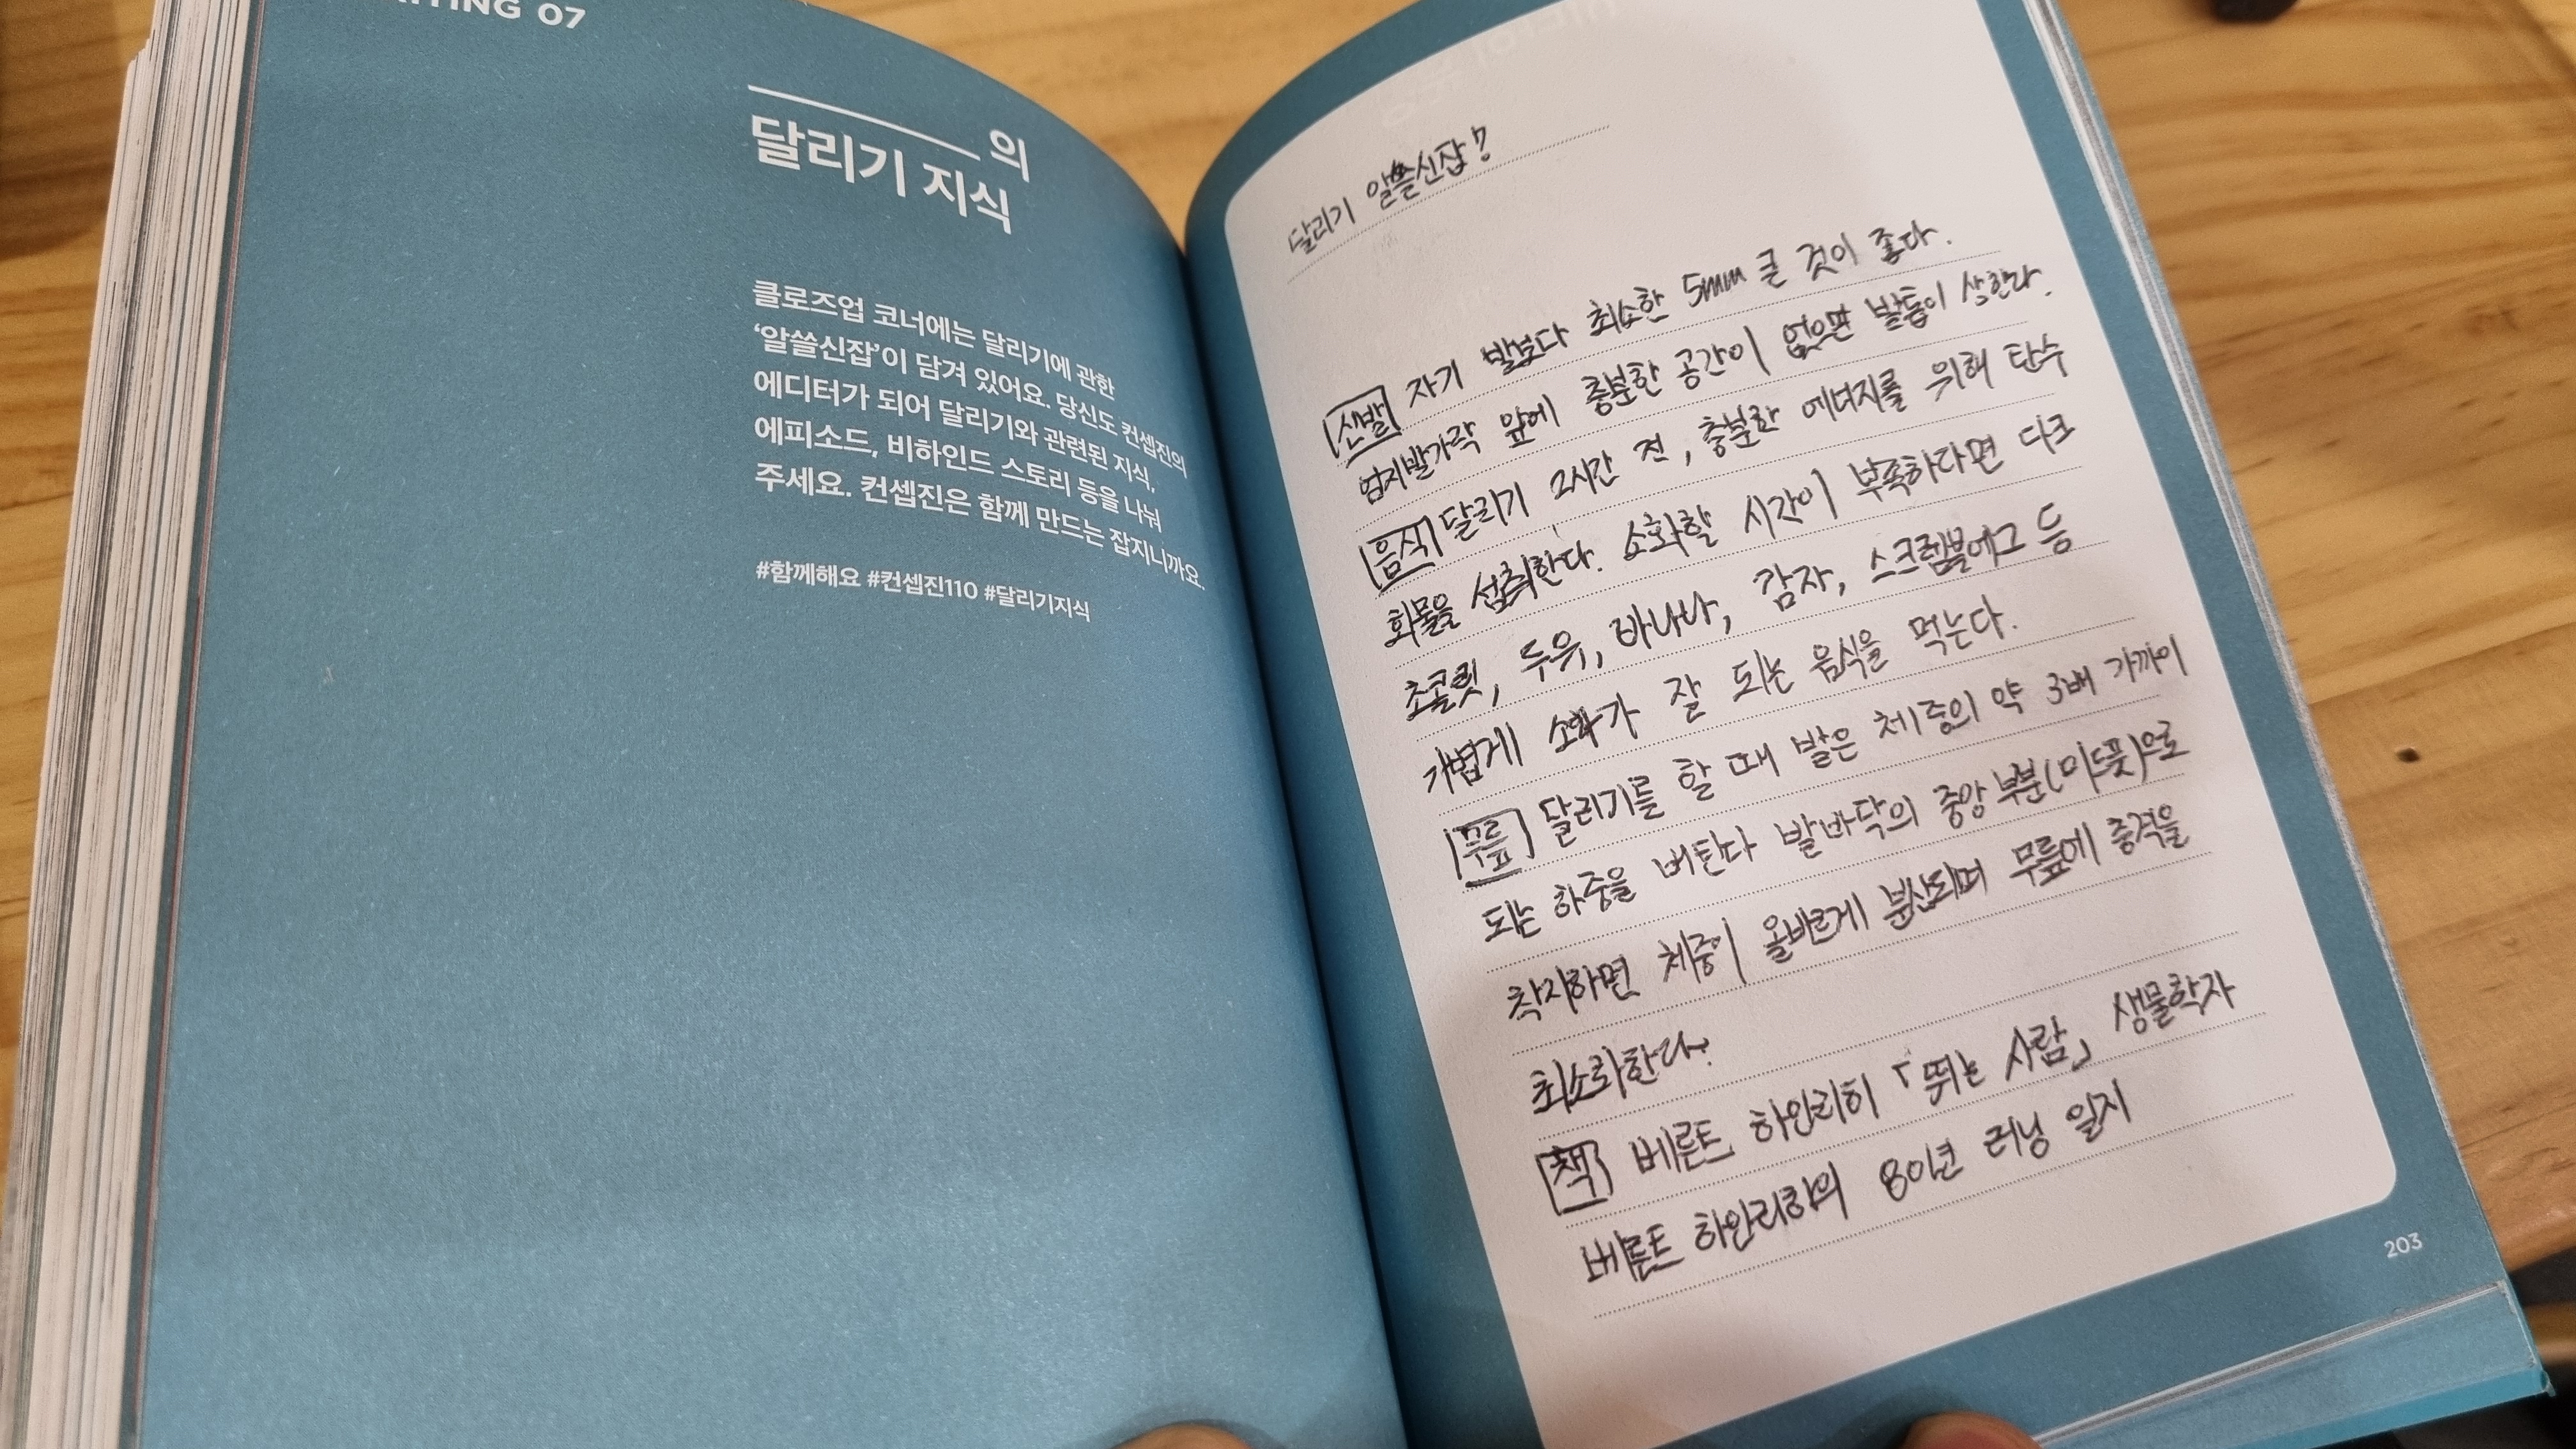 WRITING 07
의
달리기 지식
클로즈업 코너에는 달리기에 관한
‘알쓸신잡’이 담겨 있어요. 당신도 컨셉진의
에디터가 되어 달리기와 관련된 지식,
에피소드, 비하인드 스토리 등을 나눠
주세요. 컨셉진은 함께 만드는 잡지니까요.
#함께해요 #컨셉진110 #달리기지식
달리기 알쓸신잡?
신발 자기 발보다 최소한 5mm 클 것이 좋다.
엄지발가락 앞에 충분한 공간이 없으면 발톱이 상한다.
음식 달리기 2시간 전, 충분한 에너지를 위해 탄수
화물을 섭취한다. 소화할 시간이 부족하다면 다크
초콜릿, 두유, 바나나, 감자, 스크램블에그 등
가볍게 소화가 잘 되는 음식을 먹는다.
무릎 달리기를 할 때 발은 체중의 약 3배 가까이
되는 하중을 버틴다 발바닥의 중앙 부분(미드풋)으로
착지하면 체중이 올바르게 분산되며 무릎에 충격을
최소화한다.
책 베른트 하인리히 「뛰는 사람」 생물학자
베른트 하인리히의 80년 러닝 일지
203